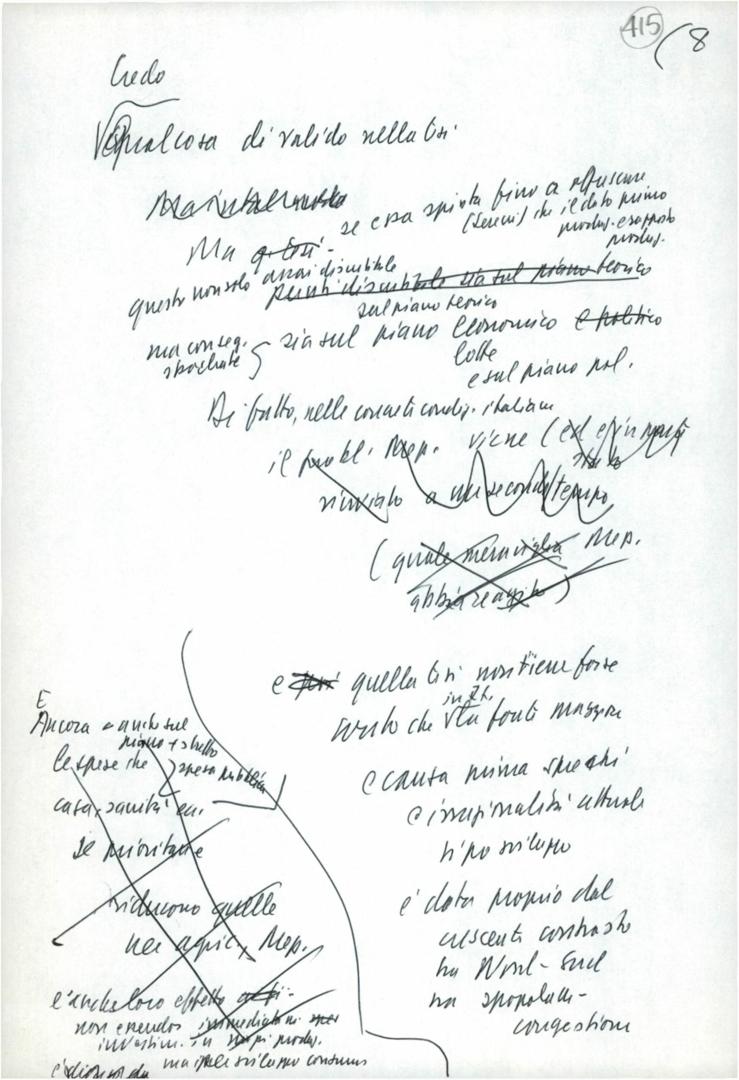 415
(8
Credo
Vi è qualcosa di valido nella tesi
Ma
se essa spinta fino a offuscare
(Sereni) che il dato primo
Ma
produz. e rapporto
produz.
questo non solo assai discutibile
discutibile sia sul piano teorico
sul piano teorico
ma conseg. sia sul piano economico e politico
sbagliate
lotte
e sul piano pol.
Di fatto, nelle concrete condiz. italiane
il probl. Mep. viene
rinviato a un secondo tempo
(quale meraviglia Mep.
abbia reagito)
e quella tesi non tiene forse
conto che la fonte maggiore
e causa prima sprechi
e irrazionalità attuale
tipo sviluppo
è data proprio dal
crescente contrasto
tra Nord-Sud
tra spopolam-
congestione
E
Ancora anche sul
piano + stretto
le spese che spesa pubblica
casa, sanità ecc.
se prioritarie
riducono quelle
nei agric, Mep.
e anche loro effetto
non essendos immediatam.
investim. in produz.
ma sviluppo consumo